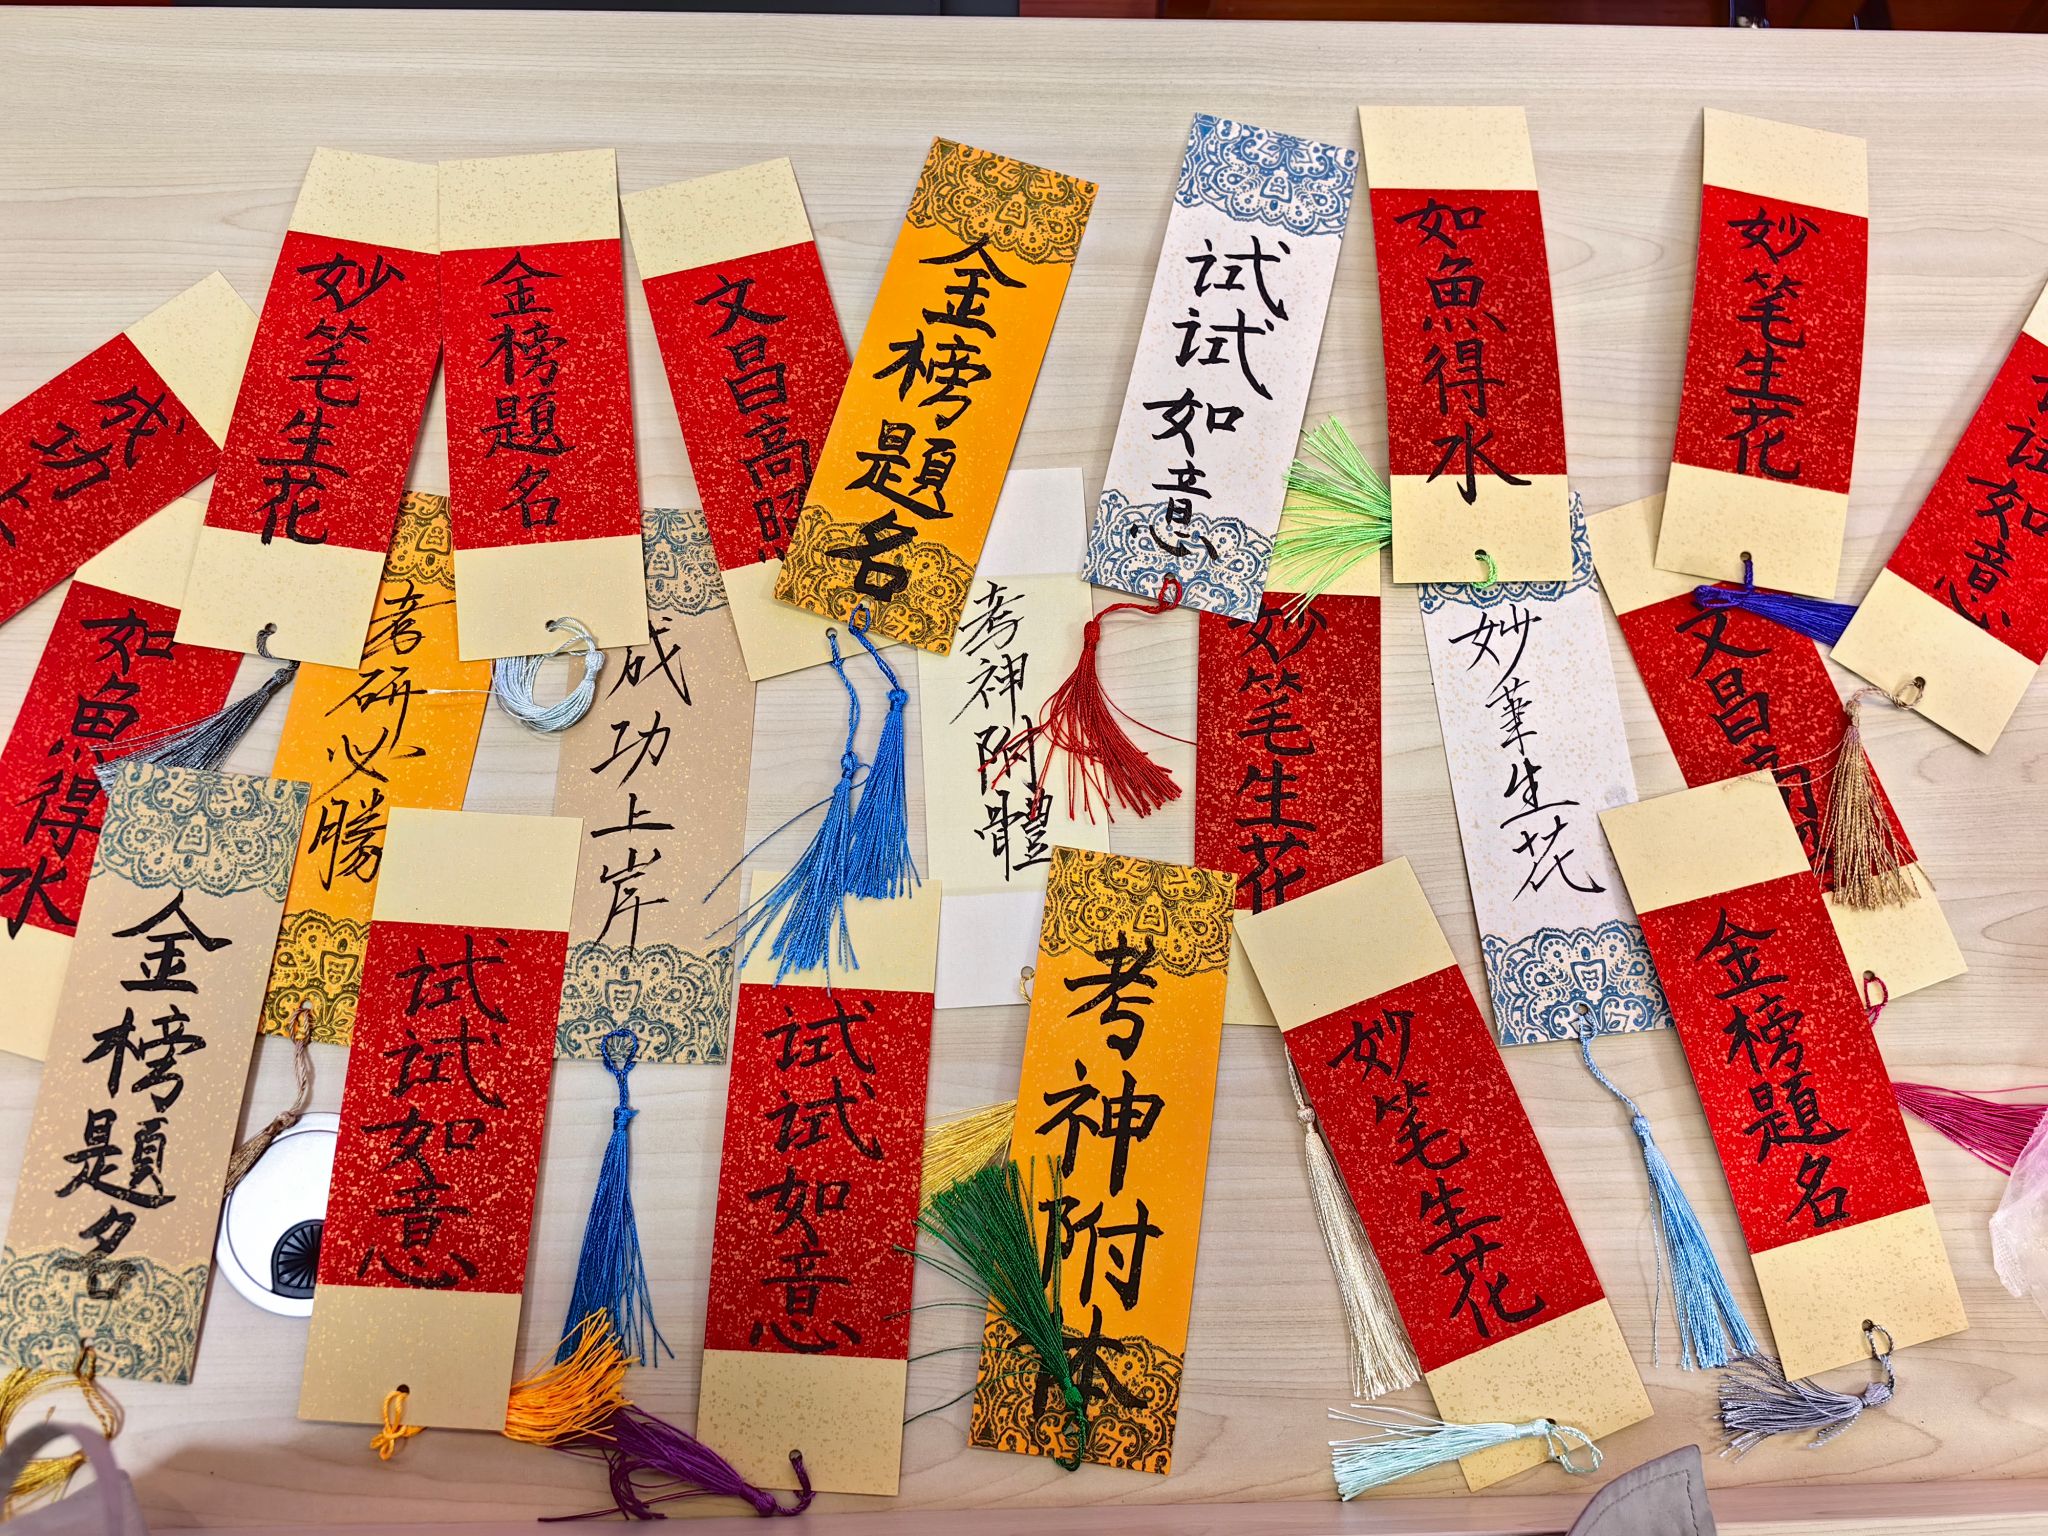 妙笔生花
金榜題名
文昌高照
金榜題名
试试如意
如魚得水
妙笔生花
试试如意
成功上
如魚得水
考研必勝
成功上岸
考神附體
妙笔生花
妙筆生花
文昌高照
金榜題名
试试如意
试试如意
考神附体
妙笔生花
金榜題名